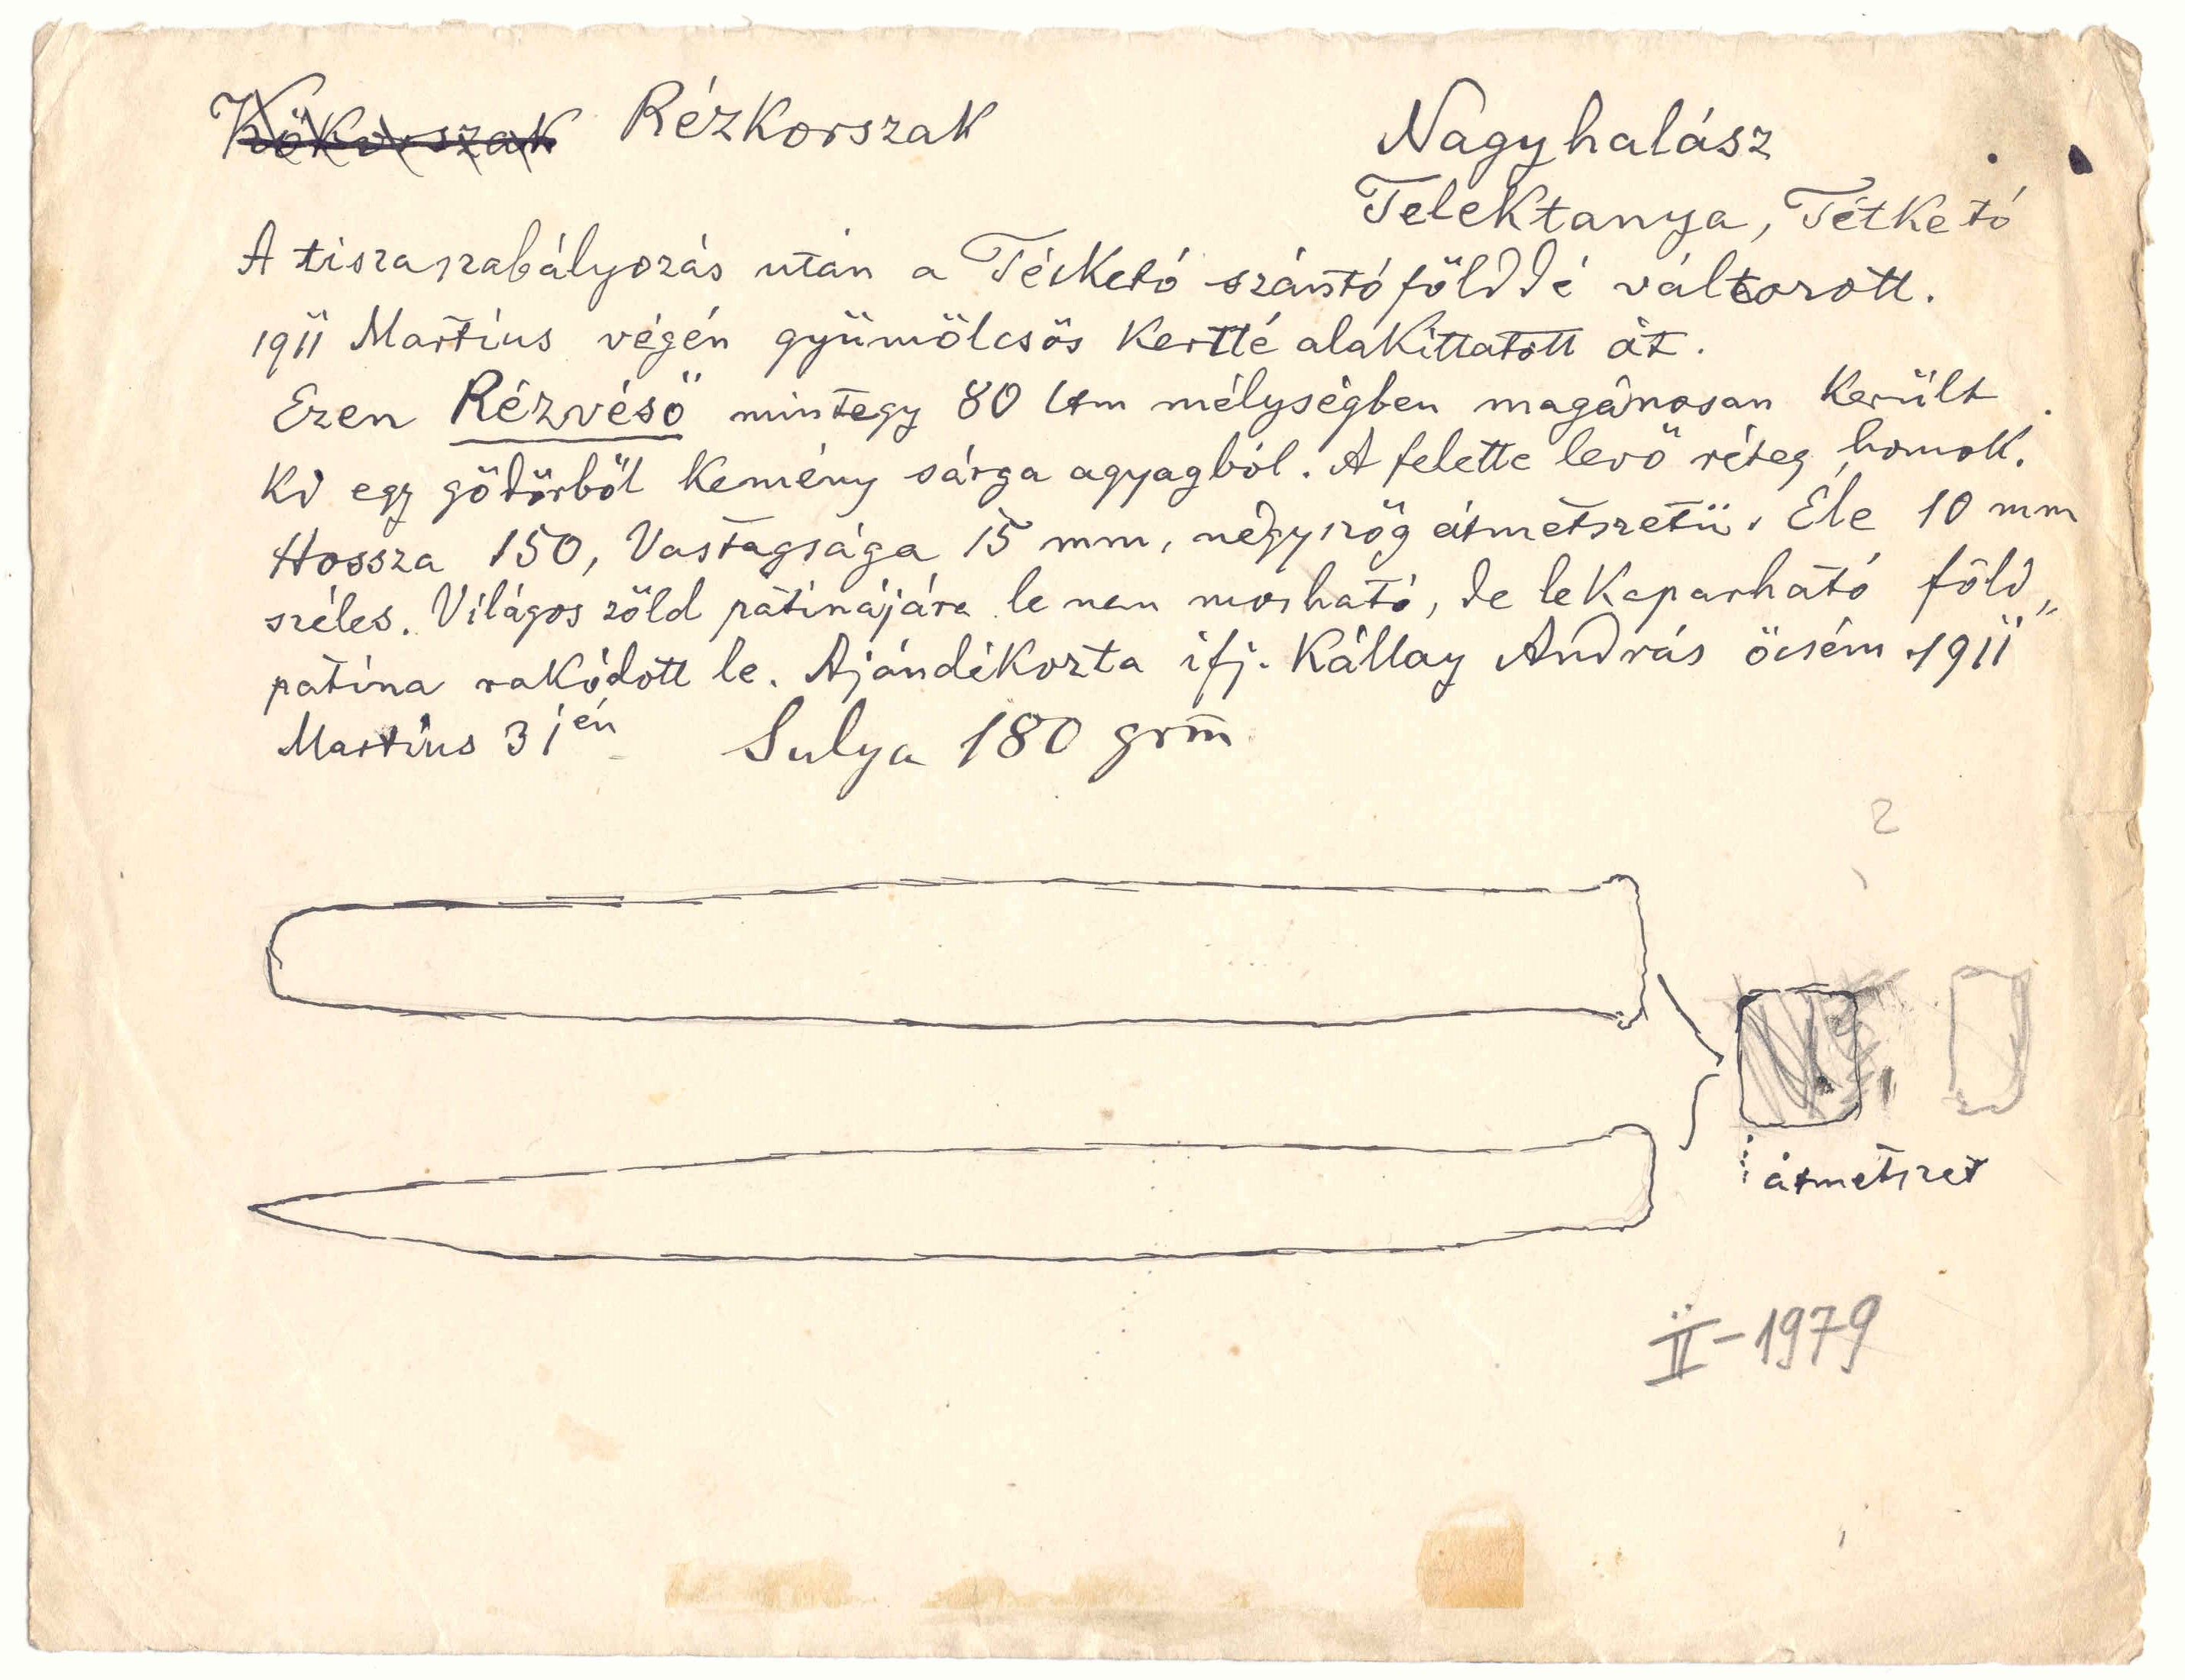 Kőkorszak Rézkorszak
Nagyhalász
Telektanya, Tétketó
A tiszaszabályozás után a Tétketó szántófölddé változott.
1911 Martius végén gyümölcsös kertté alakittatott át.
Ezen Rézvéső mintegy 80 ctm mélységben magánosan került
ki egy gödörből kemény sárga agyagból. A felette levő réteg homok.
Hossza 150, Vastagsága 15 mm, négyszög átmetszetü. Éle 10 mm
széles. Világos zöld patinájára le nem mosható, de lekaparható föld„
patina rakódott le. Ajándékozta ifj. Kállay András öcsém 1911
Martius 31én Sulya 180 grm
2
átmetszet
II-1979